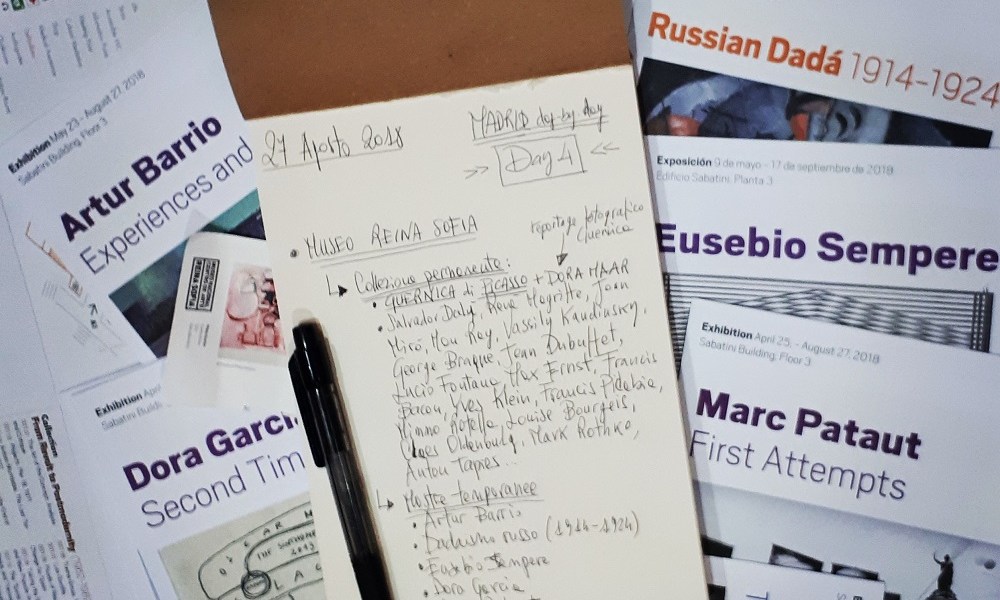 Exhibition May 23 - August 27, 2018
Sabatini Building, Floor 3
Artur Barrio
Experiences and
Exhibition
Sabatini Building,
Dora García
Second Tim
Collection
From Revolt to Postmodernity
27 Agosto 2018
MADRID day by day
>> Day 4 <<
• MUSEO REINA SOFIA
reportage fotografico
Guernica
↳ Collezione permanente:
• GUERNICA di PICASSO + DORA MAAR
• Salvador Dalì, René Magritte, Joan
Mirò, Man Ray, Vassily Kandinsky,
George Braque, Jean Dubuffet,
Lucio Fontana, Max Ernst, Francis
Bacon, Yves Klein, Francis Picabia,
Mimmo Rotella, Louise Bourgeis,
Claes Oldenburg, Mark Rothko,
Antoni Tapies...
↳ Mostre temporanee
• Artur Barrio
• Dadaismo russo (1914-1924)
• Eusebio Sempere
• Dora Garcia
Russian Dadá 1914-1924
Exposición 9 de mayo - 17 de septiembre de 2018
Edificio Sabatini, Planta 3
Eusebio Sempere
Exhibition April 25, - August 27, 2018
Sabatini Building, Floor 3
Marc Pataut
First Attempts